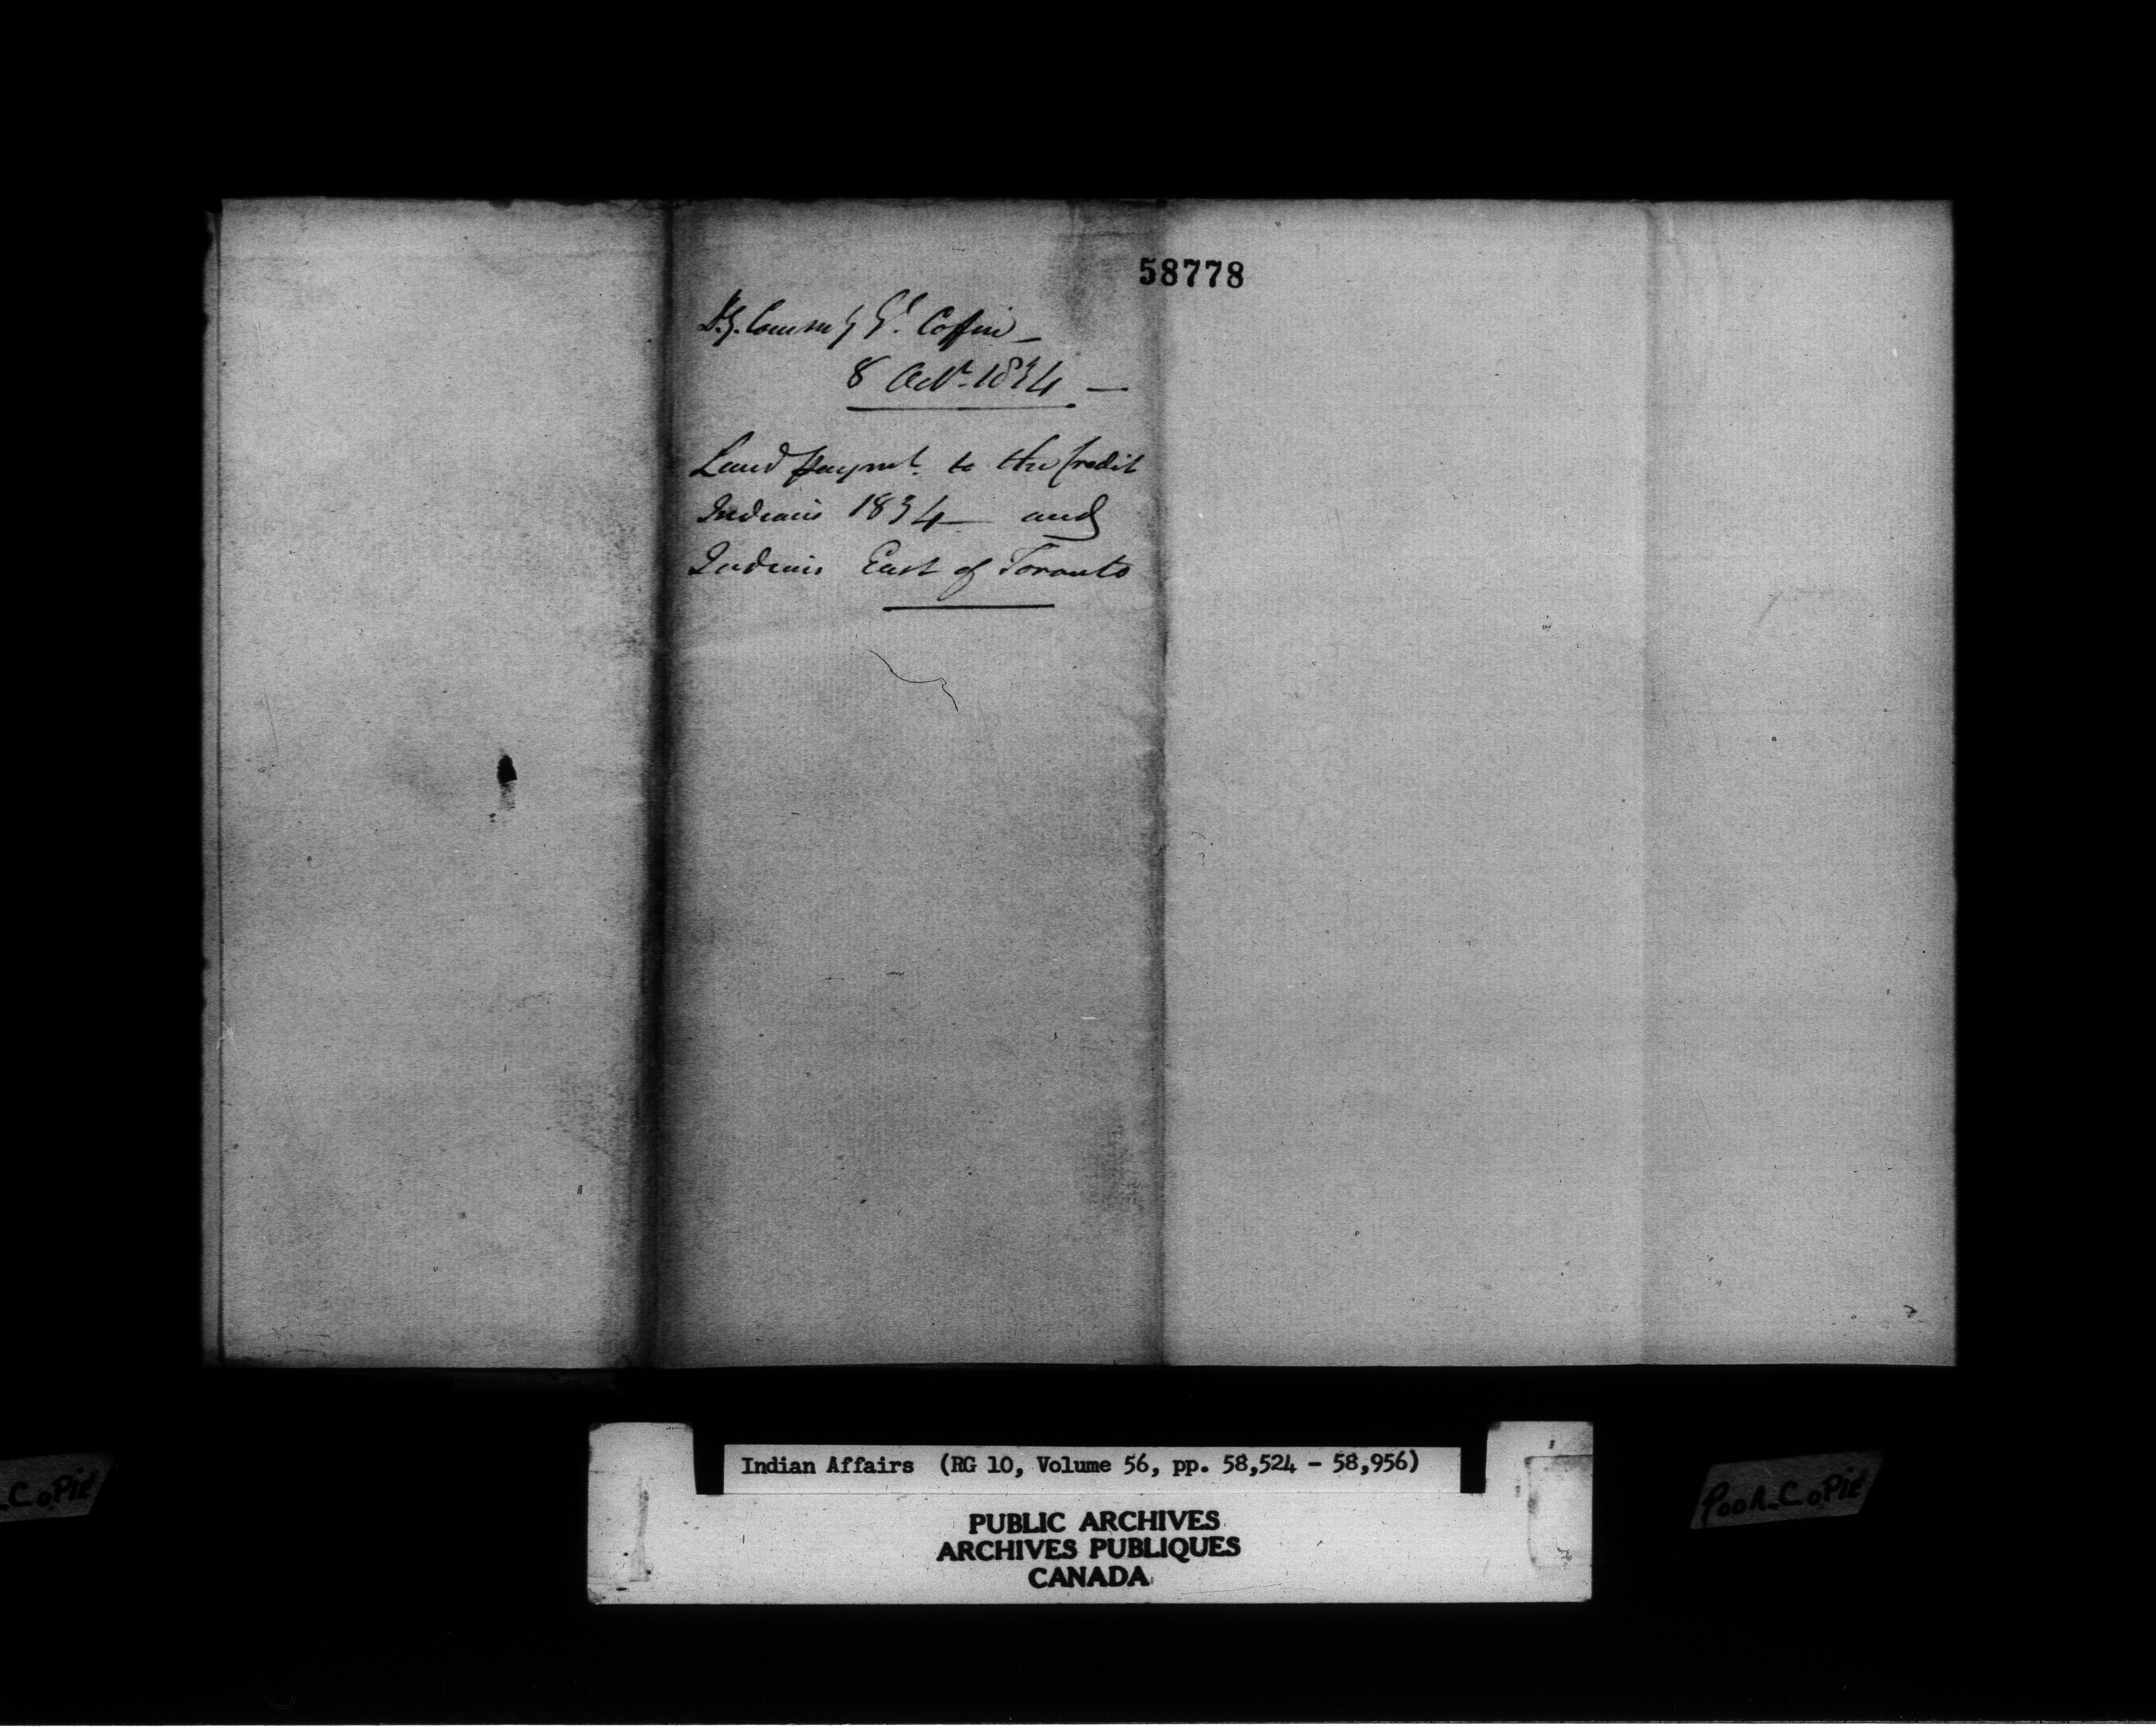 58778
D.y. Commy Gl. Coffin —
8 Octr. 1834 —
Land paymt. to the Credit
Indians 1834 — and
Indians East of Toronto
Indian Affairs (RG 10, Volume 56, pp. 58,524 - 58,956)
PUBLIC ARCHIVES
ARCHIVES PUBLIQUES
CANADA
.CoPiE
PooR.CoPiE